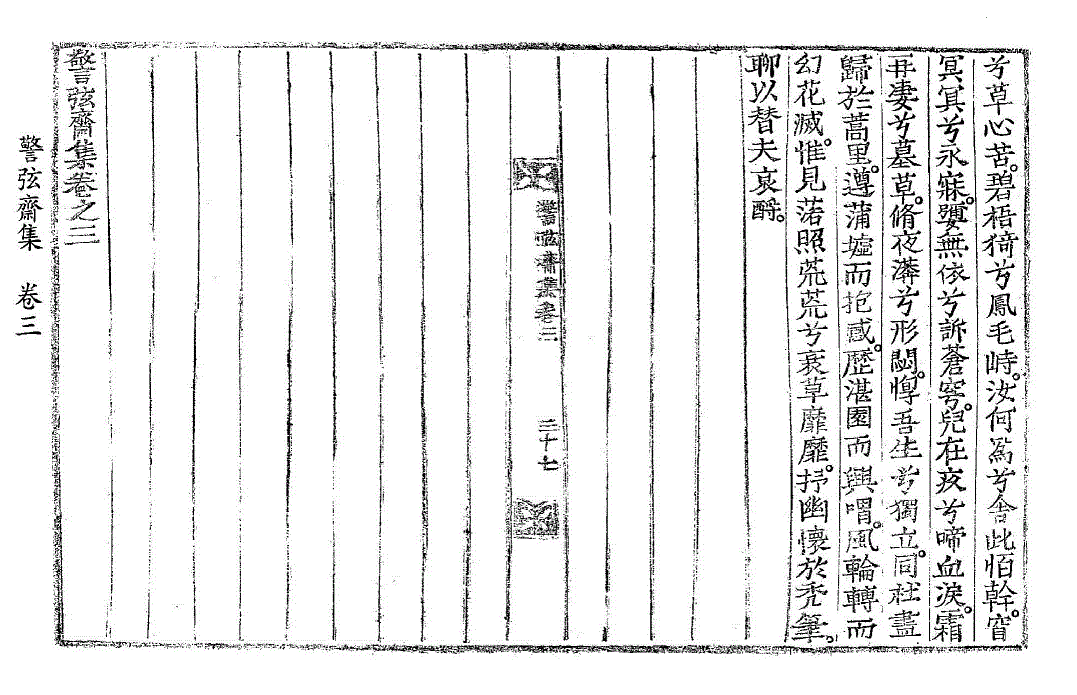 兮草心苦。碧梧猗兮鳳毛峙。汝何爲兮舍此怕幹。窅
冥冥兮永寐。孀無依兮訴蒼穹。兒在疚兮啼血淚。霜
再凄兮墓草。脩夜漭兮形閟。惸吾生兮獨立。同社盡
歸於蒿里。遵蒲墟而抱感。歷湛園而興喟。風輪轉而
幻花滅。惟見落照荒荒兮衰草靡靡。抒幽懷於禿筆。
聊以替夫哀酹。
警弦齋集卷三
三十七
警弦齋集卷之三
警弦齋集 卷三